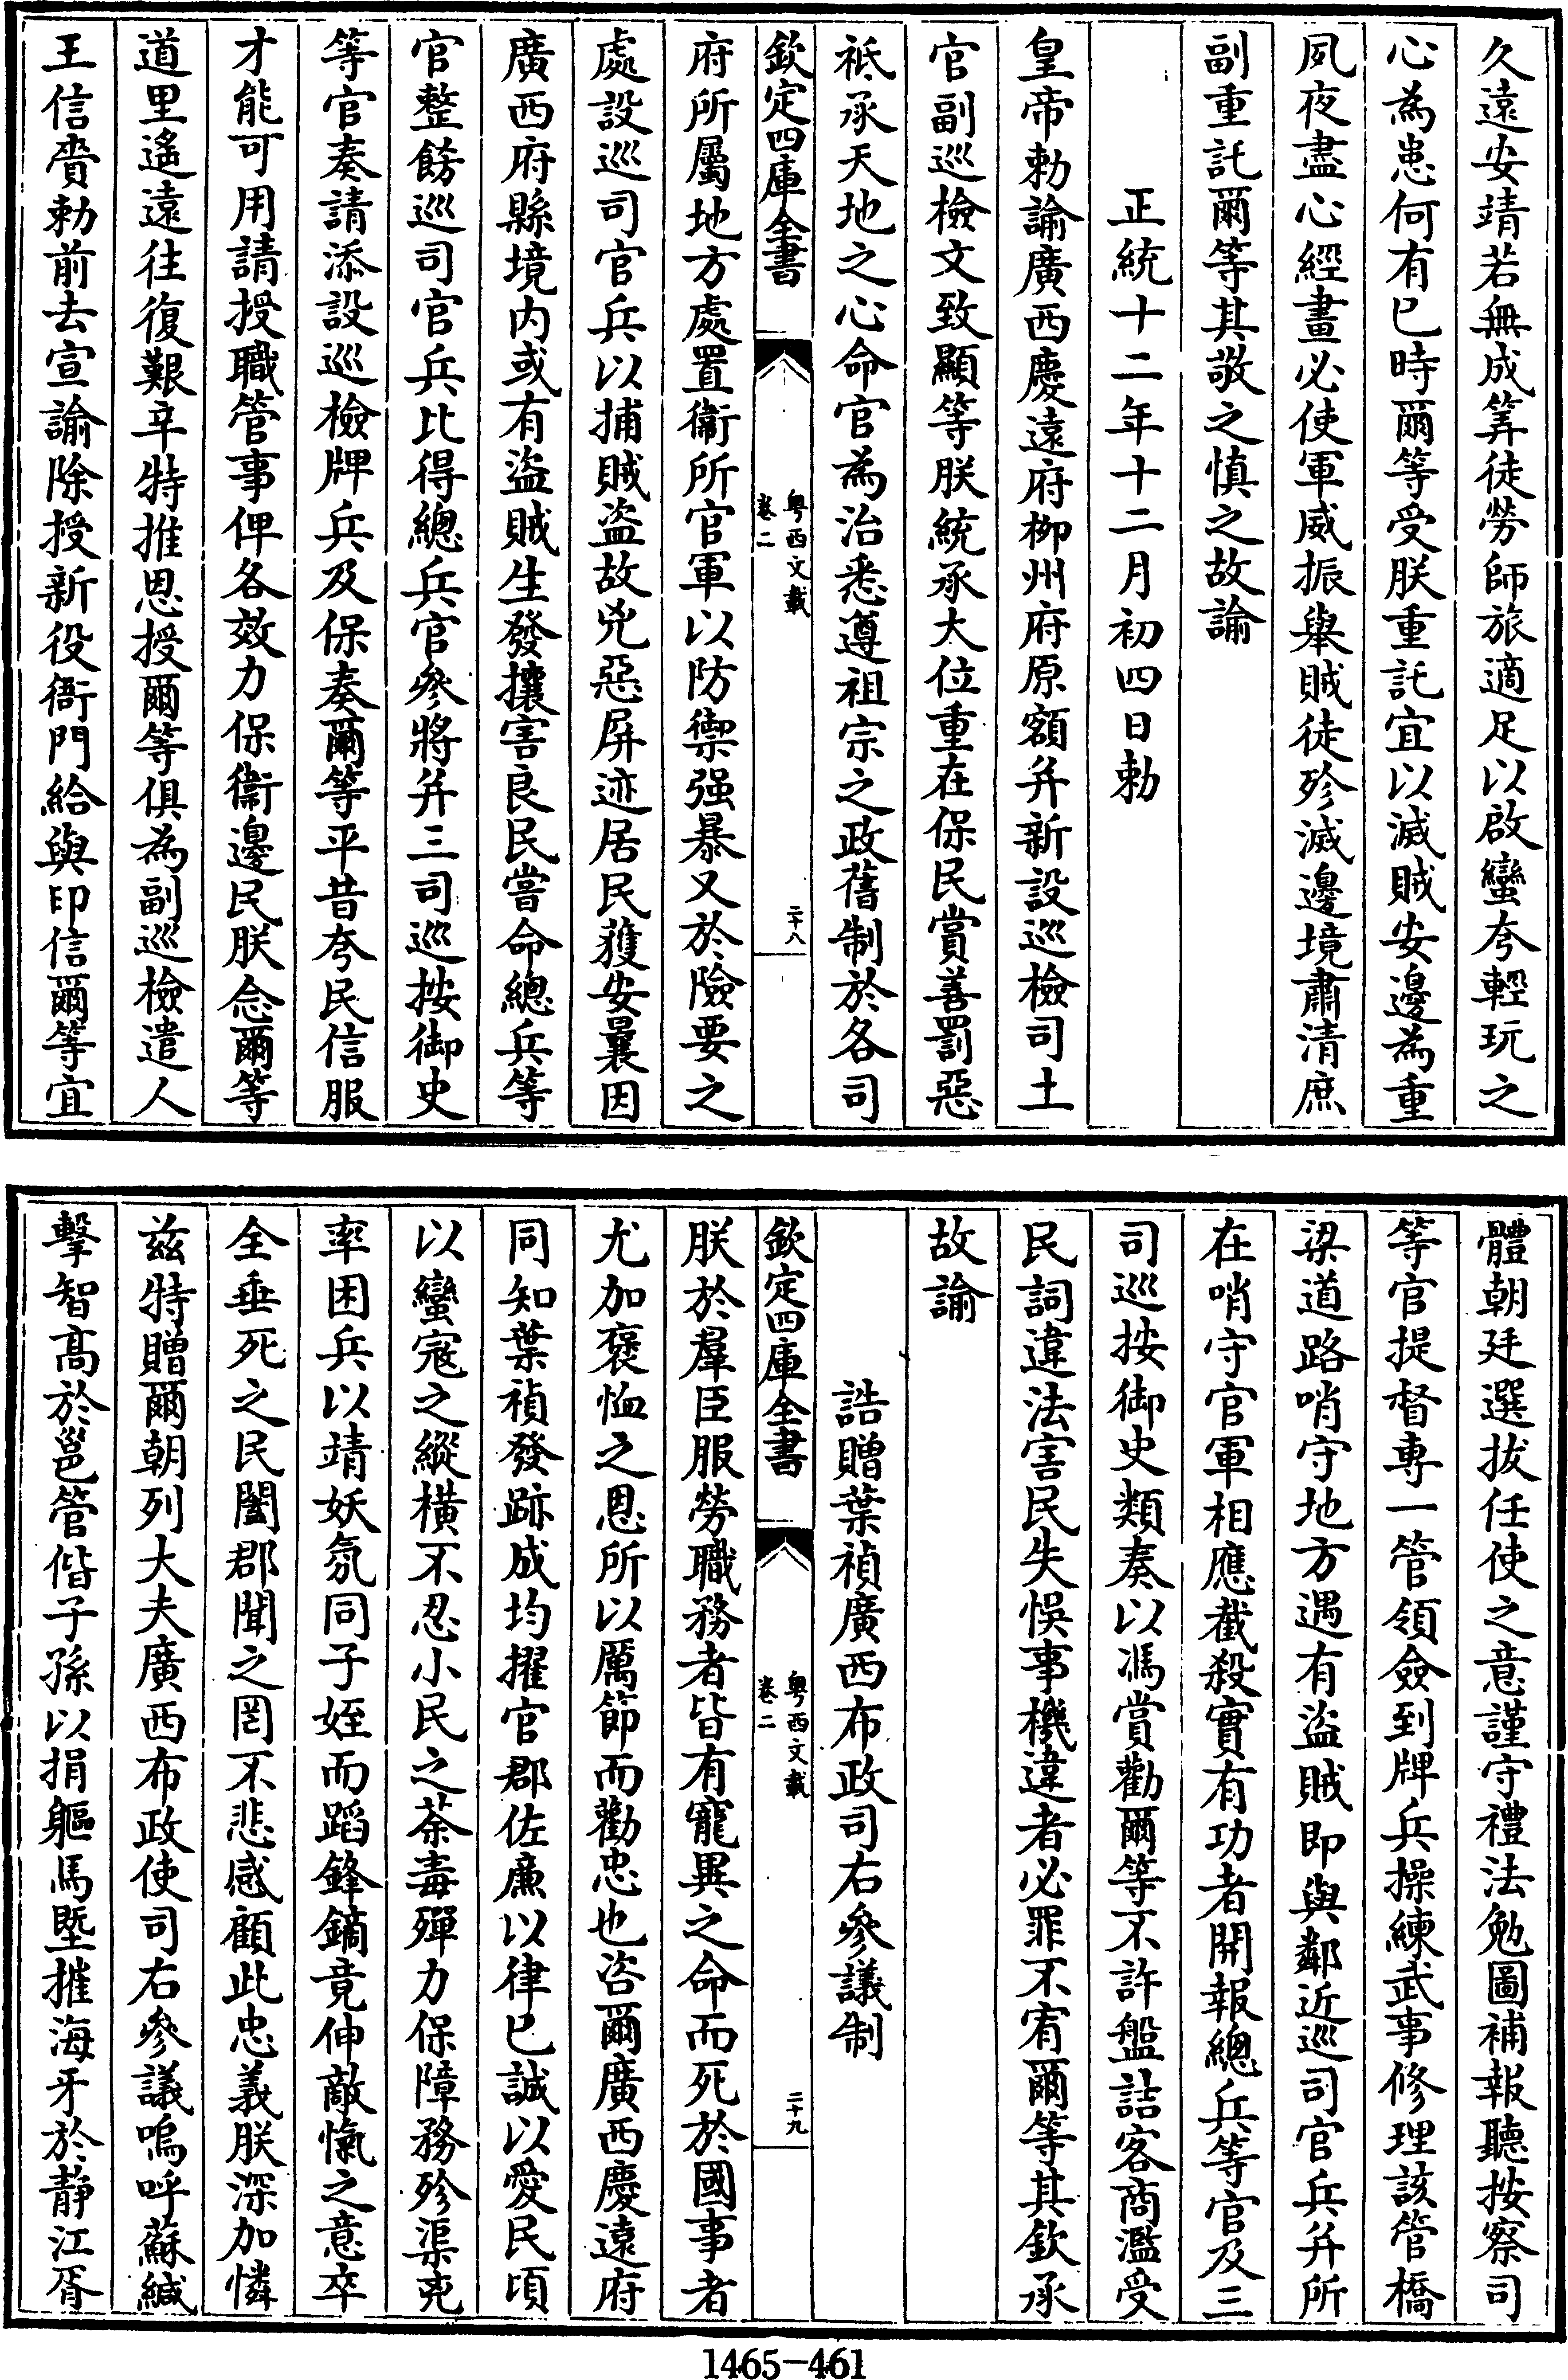 久遠安靖若無成筭徒勞師旅適足以啟蠻夸輕玩之
心為患何有已時爾等受朕重託宜以滅賊安邊為重
夙夜盡心經畫必使軍威振舉賊徒殄滅邊境肅清庶
副重託爾等其敬之慎之故諭
正統十二年十二月初四日勅
皇帝勅諭廣西慶遠府栁州府原額并新設巡檢司土
官副巡檢文致顯等朕統承大位重在保民賞善罰惡
祗承天地之心命官為治悉遵祖宗之政舊制於各司
欽定四庫全書
粤西文載
卷二
二十八
府所屬地方處置衞所官軍以防禦强暴又於險要之
處設巡司官兵以捕賊盜故兇惡屏迹居民獲安曩因
廣西府縣境内或有盜賊生發攘害良民嘗命總兵等
官整飭巡司官兵比得總兵官參將并三司巡按御史
等官奏請添設巡檢牌兵及保奏爾等平昔夸民信服
才能可用請授職管事俾各效力保衞邊民朕念爾等
道里遙遠往復艱辛特推恩授爾等俱為副巡檢遣人
王信賫勅前去宣諭除授新役衙門給與印信爾等宜
體朝廷選拔任使之意謹守禮法勉圖補報聽按察司
等官提督專一管領僉到牌兵操練武事修理該管橋
梁道路哨守地方遇有盜賊即與鄰近巡司官兵并所
在哨守官軍相應截殺實有功者開報總兵等官及三
司巡按御史類奏以馮賞勸爾等不許盤詰客商濫受
民詞違法害民失悞事機違者必罪不宥爾等其欽承
故諭
誥贈葉禎廣西布政司右參議制
欽定四庫全書
粤西文載
卷二
二十九
朕於羣臣服勞職務者皆有寵異之命而死於國事者
尤加褒恤之恩所以厲節而勸忠也咨爾廣西慶遠府
同知葉禎發跡成均擢官郡佐廉以律已誠以愛民頃
以蠻寇之縱橫不忍小民之荼毒殫力保障務殄渠克
率困兵以靖妖氛同子姪而蹈鋒鏑竟伸敵愾之意卒
全垂死之民闔郡聞之罔不悲感顧此忠義朕深加憐
兹特贈爾朝列大夫廣西布政使司右參議嗚呼蘇緘
擊智高於邕管偕子孫以捐軀馬塈摧海牙於靜江胥
1465-461